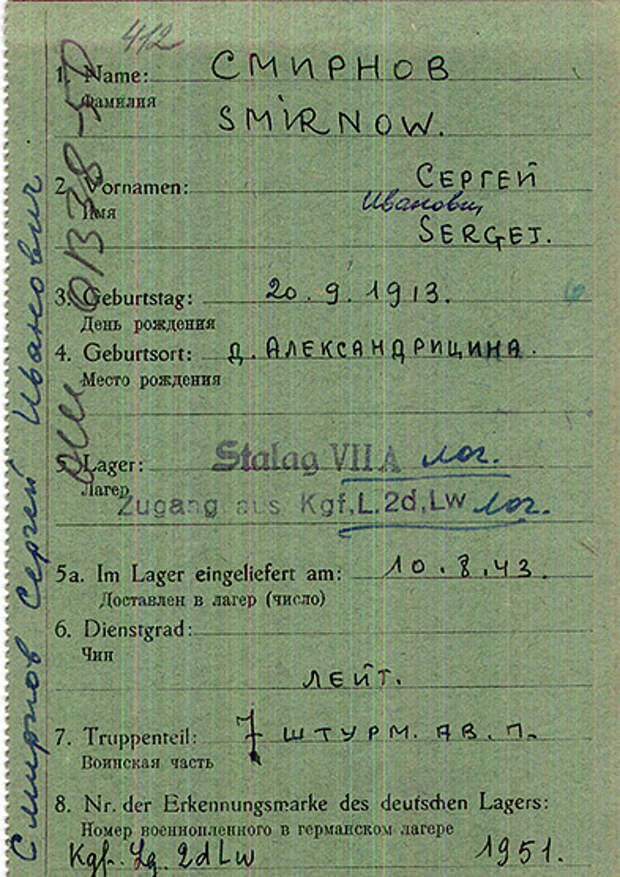 412
1. Name: СМИРНОВ
Фамилия
SMIRNOW.
2. Vornamen: СЕРГЕЙ
Имя Иванович
SERGEJ.
3. Geburtstag: 20.9.1913.
День рождения
4. Geburtsort: Д. АЛЕКСАНДРИЦИНА.
Место рождения
5. Lager: Stalag VII A лаг.
Лагер
Zugang aus Kgf,L.2d,Lw лаг.
5a. Im Lager eingeliefert am: 10.8.43.
Доставлен в лагер (число)
6. Dienstgrad:
Чин
ЛЕЙТ.
7. Truppenteil: 7 ШТУРМ. АВ. П.
Воинская часть
8. Nr. der Erkennungsmarke des deutschen Lagers:
Номер военнопленного в германском лагере
Kgf. Lg. 2d Lw 1951.
Смирнов Сергей Иванович